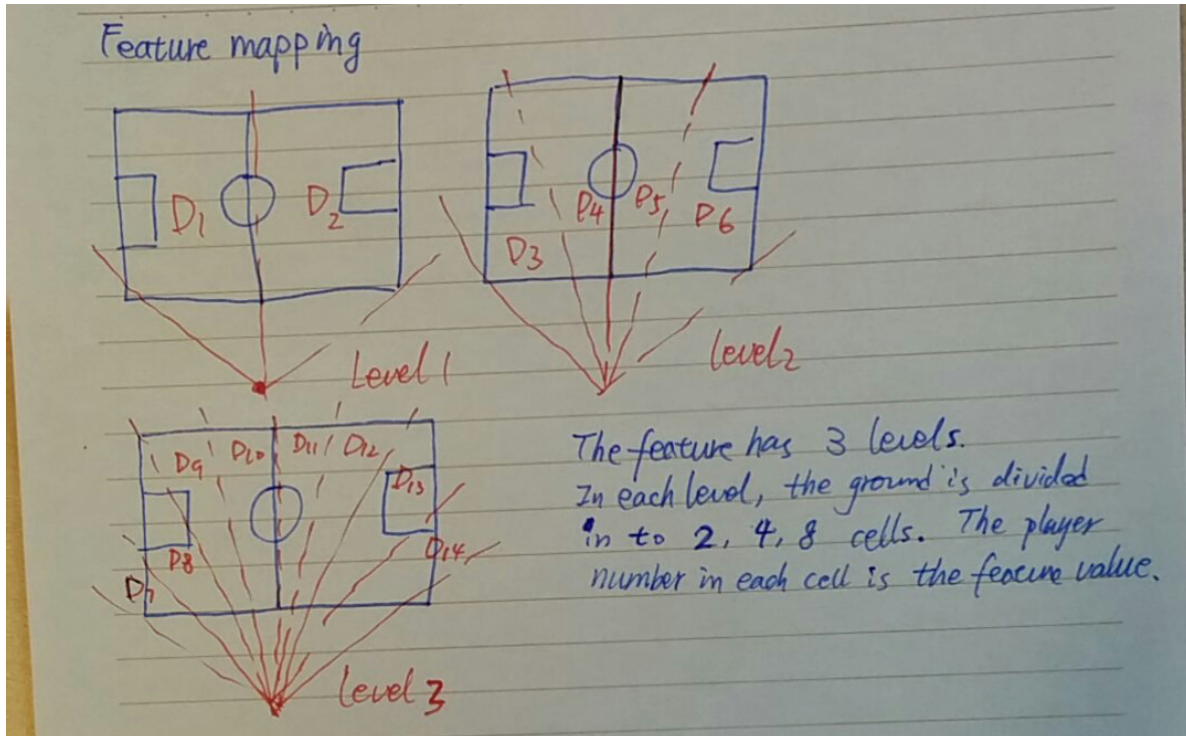 Feature mapping
D1 D2
Level 1
D3 D4 D5 D6
level2
D7 D8 D9 D10 D11 D12 D13 D14
level 3
The feature has 3 levels.
In each level, the ground is divided
in to 2, 4, 8 cells. The player
number in each cell is the feacure value.